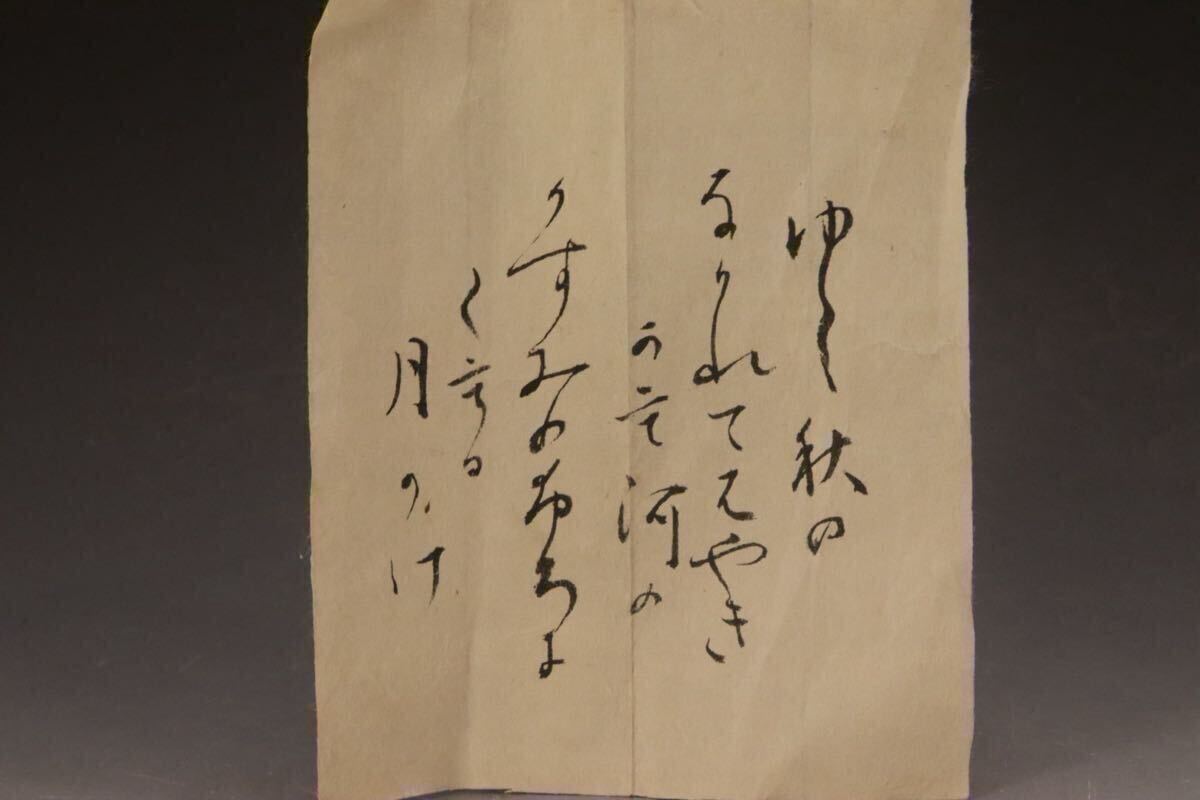 ゆく秋の
なかれてはやき
かも河の
かすみのふちに
くもる
月かけ